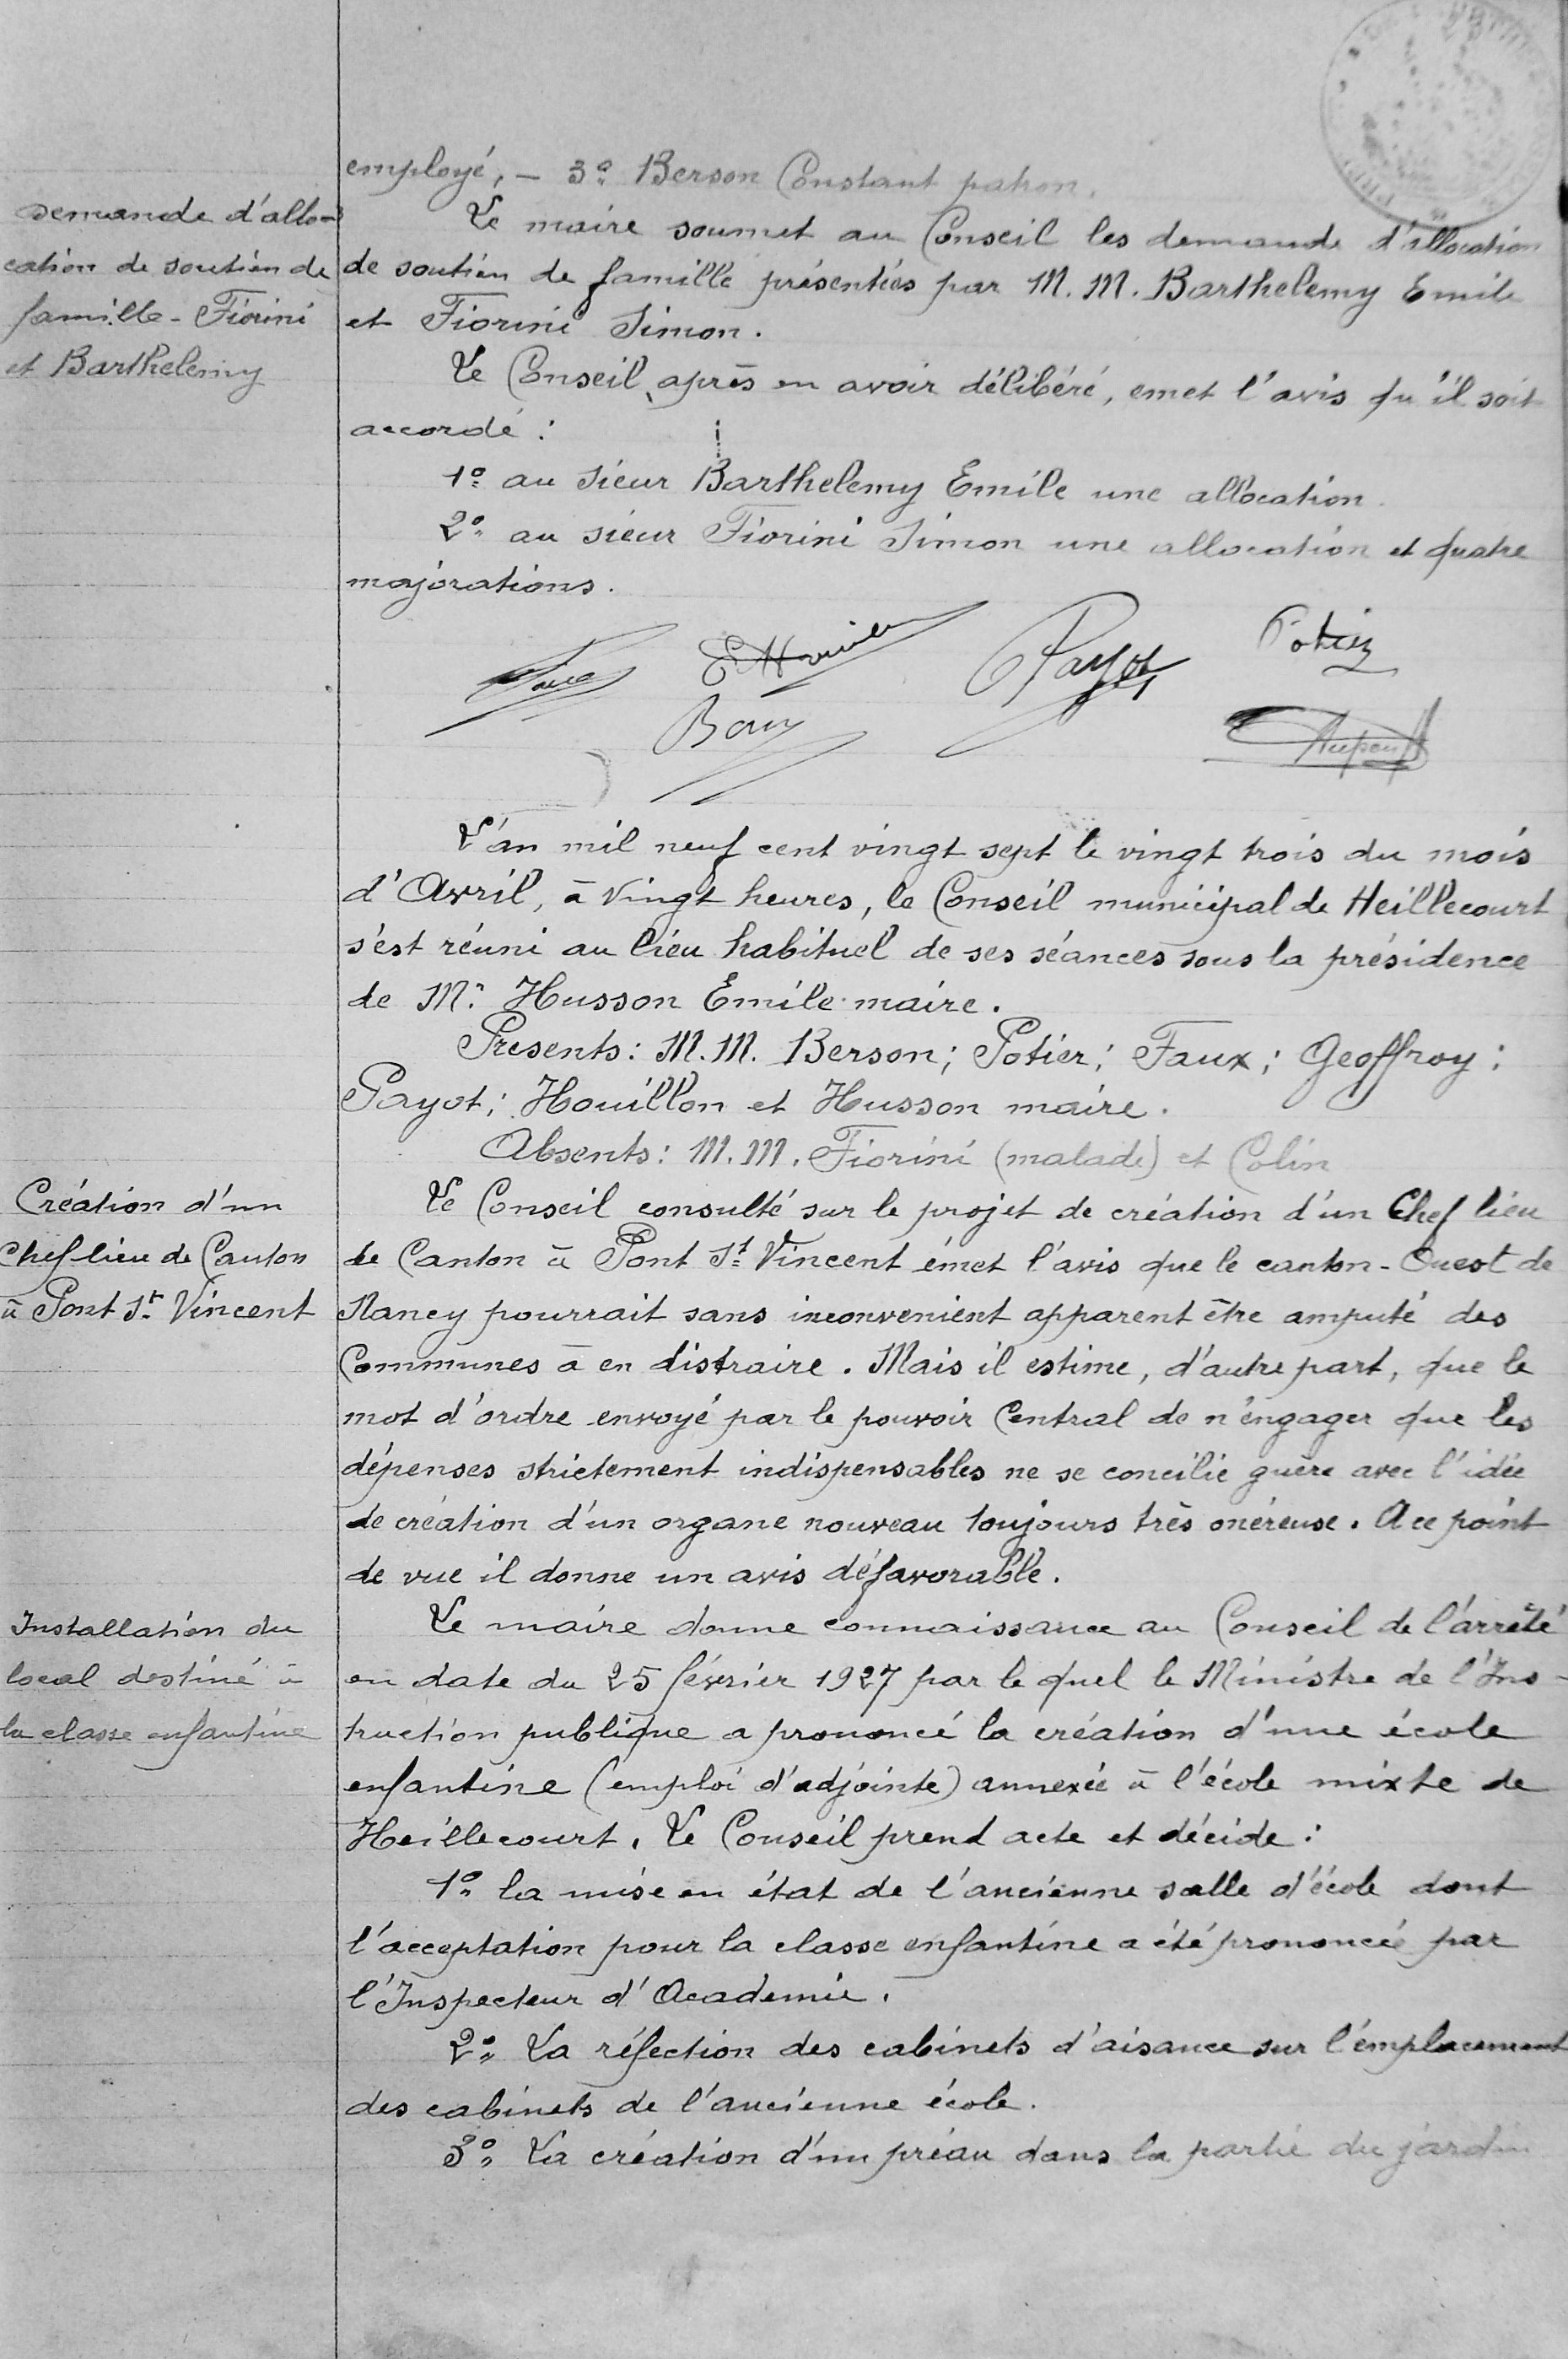 employé, - 3° Berson Constant patron.
Demande d'allo-
cation de soutien de
famille - Fiorini
et Barthelemy
Le maire soumet au Conseil les demande d'allocation
de soutien de famille présentées par M. M. Barthelemy Emile
et Fiorini Simon.
Le Conseil, après en avoir délibéré, emet l'avis qu'il soit
accordé :
1° au sieur Barthelemy Emile une allocation.
2° au sieur Fiorini Simon une allocation et quatre
majorations.
Payot
Potier
L'an mil neuf cent vingt sept le vingt trois du mois
d'Avril, à vingt heures, le Conseil municipal de Heillecourt
s'est réuni au lieu habituel de ses séances sous la présidence
de Mr Husson Emile maire.
Presents : M. M. Berson ; Potier ; Faux ; Geoffroy ;
Payot ; Houillon et Husson maire.
Absents : M. M. Fiorini (malade) et Colin
Création d'un
Chef lieu de Canton
à Pont St Vincent
Le Conseil consulté sur le projet de création d'un Chef lieu
de Canton à Pont St Vincent émet l'avis que le canton-Ouest de
Nancy pourrait sans inconvenient apparent être amputé des
Communes à en distraire. Mais il estime, d'autre part, que le
mot d'ordre envoyé par le pouvoir Central de n'engager que les
dépenses strictement indispensables ne se concilie guère avec l'idée
de création d'un organe nouveau toujours très onéreuse. A ce point
de vue il donne un avis défavorable.
Installation du
local destiné à
la classe enfantine
Le maire donne connaissance au Conseil de l'arrêté
en date du 25 février 1927 par le quel le Ministre de l'Ins-
truction publique a prononcé la création d'une école
enfantine (emploi d'adjointe) annexée à l'école mixte de
Heillecourt. Le Conseil prend acte et décide :
1° la mise en état de l'ancienne salle d'école dont
l'acceptation pour la classe enfantine a été prononcée par
l'Inspecteur d'Academie.
2° La réfection des cabinets d'aisance sur l'emplacement
des cabinets de l'ancienne école.
3° La création d'un préau dans la partie du jardin